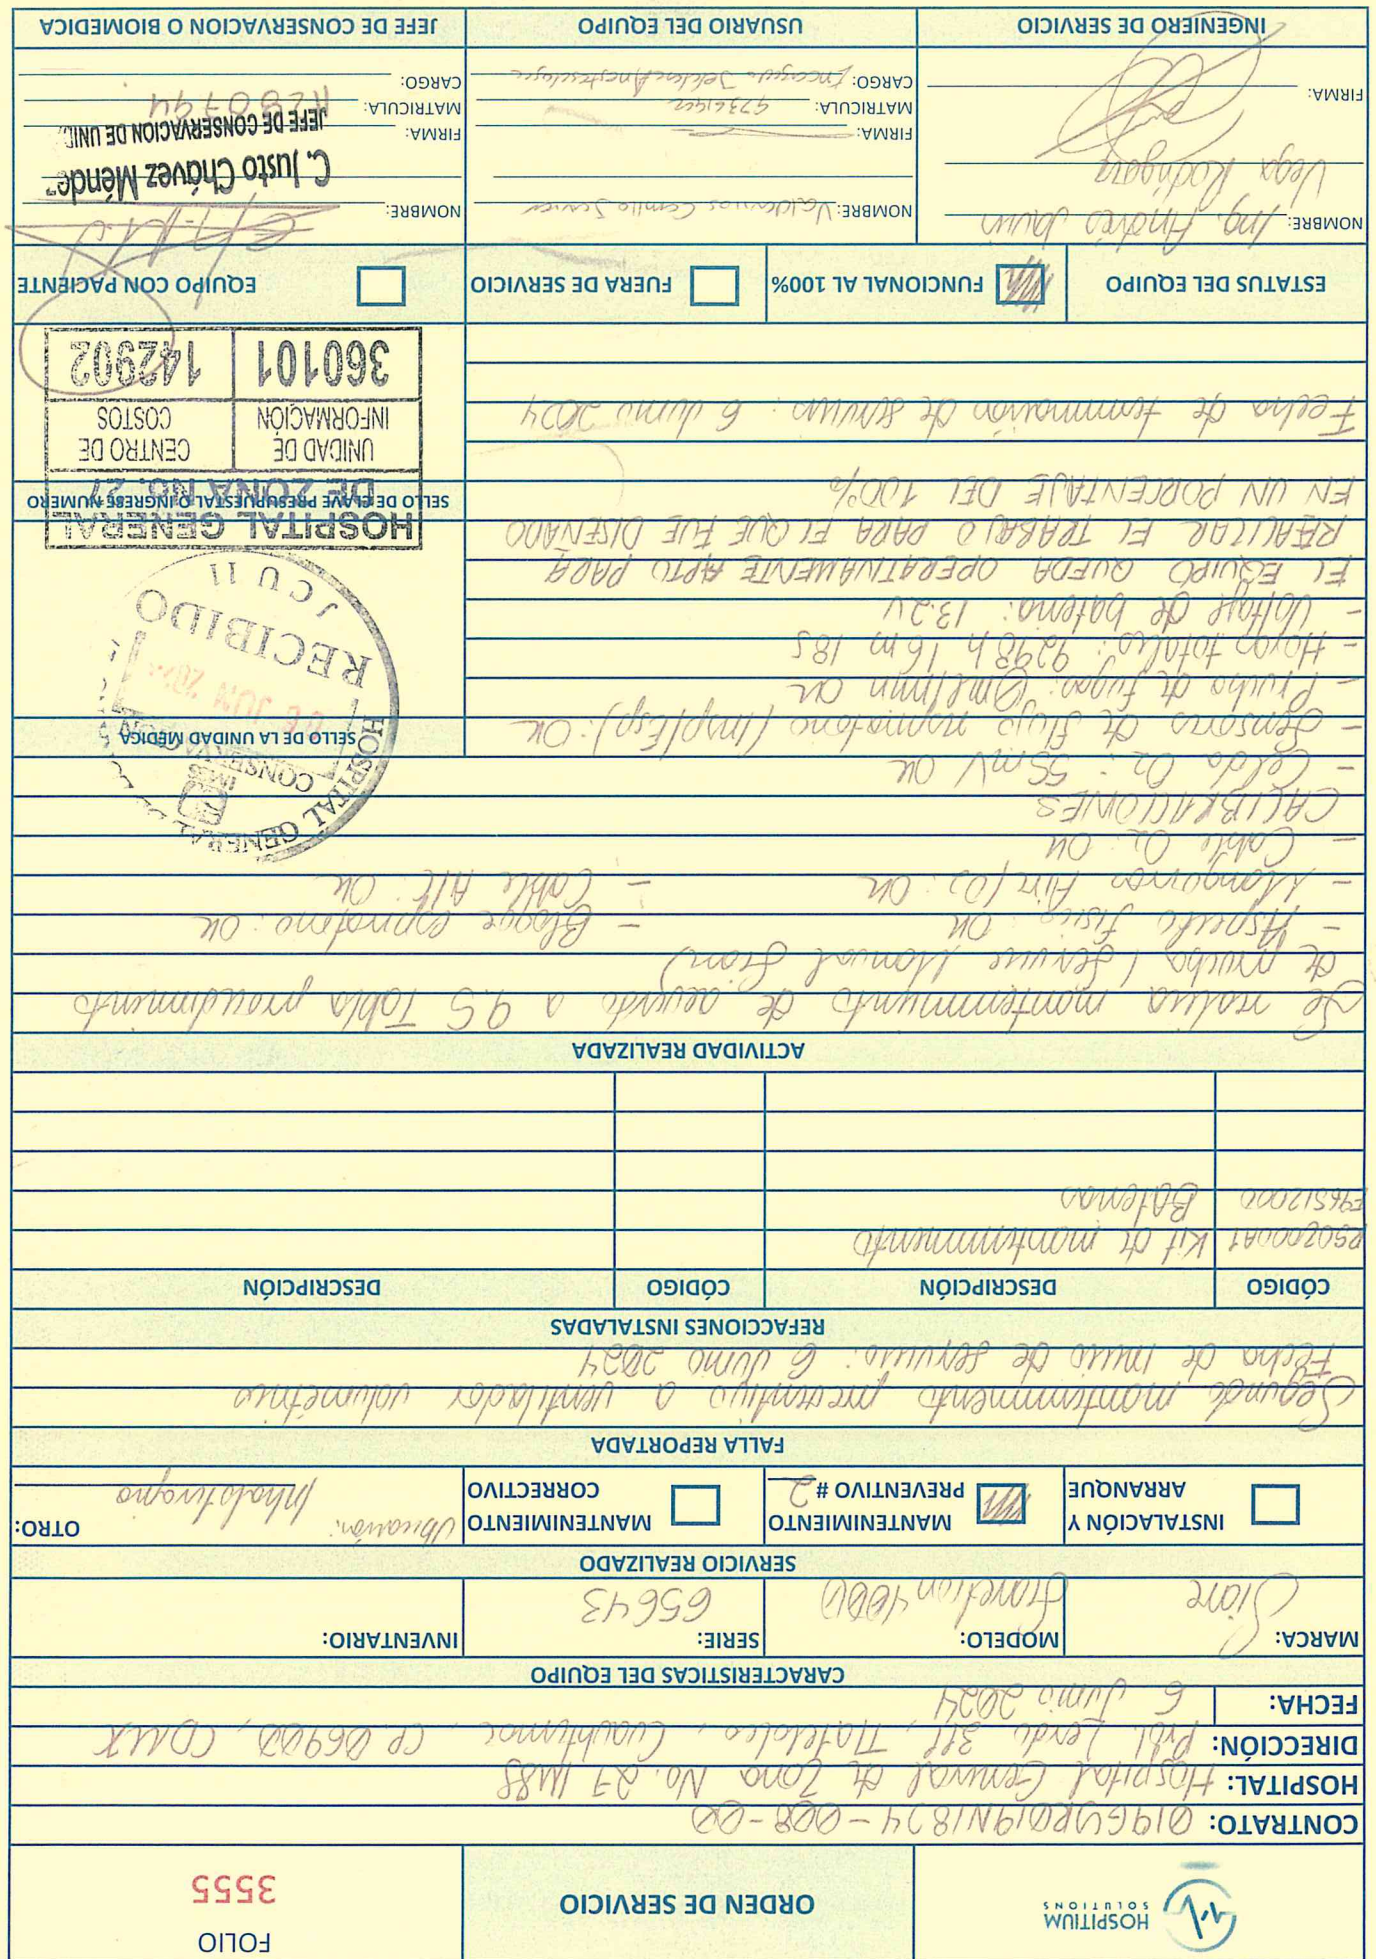 HOSPITIUM
SOLUTIONS
ORDEN DE SERVICIO
FOLIO
3555
CONTRATO: 019GYR019N1824-008-00
HOSPITAL: Hospital General de Zona No. 27 IMSS
DIRECCIÓN: Prol. Lerdo 311, Tlatelolco, Cuauhtemoc, CP 06900, CDMX
FECHA: 6 Junio 2024
CARACTERISTICAS DEL EQUIPO
MARCA: Siare
MODELO: Siaretron 4000
SERIE: 65643
INVENTARIO:
SERVICIO REALIZADO
INSTALACIÓN Y ARRANQUE
MANTENIMIENTO PREVENTIVO # 2
MANTENIMIENTO CORRECTIVO
OTRO:
Ubicación: Inhaloterapia
FALLA REPORTADA
Segundo mantenimiento preventivo a ventilador volumétrico
Fecha de inicio de servicio: 6 Junio 2024
REFACCIONES INSTALADAS
CÓDIGO DESCRIPCIÓN CÓDIGO DESCRIPCIÓN
Kit de mantenimiento
Baterias
ACTIVIDAD REALIZADA
Se realiza mantenimiento de acuerdo a 9.5 Tabla procedimiento
de prueba (Service Manual Siare)
- Aspecto fisico: OK - Bloque espiratorio: OK
- Mangueras Aire/O2: OK - Cable Alt: OK
- Cable O2: OK
CALIBRACIONES
- Celda O2: 55mV OK
- Sensores de flujo neumotaco (Insp/Esp): OK
- Prueba de fugas: 0ml/min OK
- Horas totales: 9298 h 16 m 18s
- Voltaje de bateria: 13.2V
EL EQUIPO QUEDA OPERATIVAMENTE APTO PARA
REALIZAR EL TRABAJO PARA EL QUE FUE DISEÑADO
EN UN PORCENTAJE DEL 100%
Fecha de terminación de servicio: 6 Junio 2024
SELLO DE LA UNIDAD MÉDICA
HOSPITAL GENERAL
IMSS
CONSERVA
06 JUN
RECIBIDO
J C U 11
SELLO DE CLAVE PRESUPUESTAL O INGRESE NÚMERO
HOSPITAL GENERAL
DE ZONA No. 27
UNIDAD DE INFORMACIÓN
CENTRO DE COSTOS
360101
142902
ESTATUS DEL EQUIPO
FUNCIONAL AL 100%
FUERA DE SERVICIO
EQUIPO CON PACIENTE
NOMBRE: Ing. Andrés Javier
Vega Rodríguez
FIRMA:
INGENIERO DE SERVICIO
NOMBRE: Valderrios Camilo Servor
FIRMA:
MATRICULA:
CARGO: Encargado
USUARIO DEL EQUIPO
NOMBRE:
C. Justo Chávez Ménde
FIRMA:
JEFE DE CONSERVACION DE UNID
MATRICULA:
CARGO:
JEFE DE CONSERVACION O BIOMEDICA